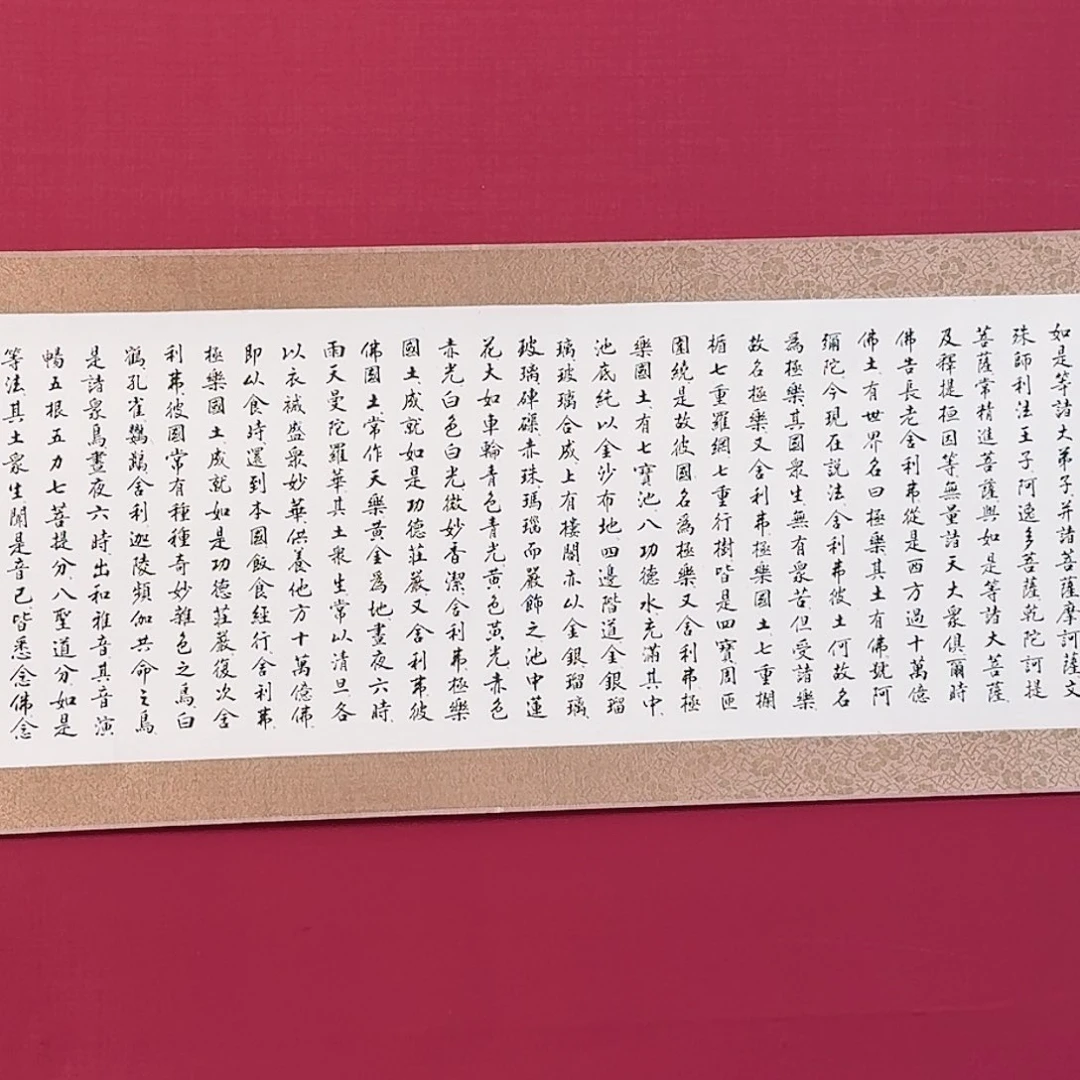 如是等諸大弟子并諸菩薩摩訶薩文
殊師利法王子阿逸多菩薩乾陀訶提
菩薩常精進菩薩與如是等諸大菩薩
及釋提桓因等無量諸天大衆俱爾時
佛告長老舍利弗從是西方過十萬億
佛土有世界名曰極樂其土有佛號阿
彌陀今現在説法舍利弗彼土何故名
為極樂其國衆生無有衆苦但受諸樂
故名極樂又舍利弗極樂國土七重欄
楯七重羅網七重行樹皆是四寶周匝
圍繞是故彼國名為極樂又舍利弗極
樂國土有七寶池八功德水充滿其中
池底純以金沙布地四邊階道金銀瑠
璃玻璃合成上有樓閣亦以金銀瑠璃
玻璃硨磲赤珠瑪瑙而嚴飾之池中蓮
花大如車輪青色青光黄色黄光赤色
赤光白色白光微妙香潔舍利弗極樂
國土成就如是功德莊嚴又舍利弗彼
佛國土常作天樂黄金為地晝夜六時
雨天曼陀羅華其土衆生常以清旦各
以衣裓盛衆妙華供養他方十萬億佛
即以食時還到本國飯食經行舍利弗
極樂國土成就如是功德莊嚴復次舍
利弗彼國常有種種奇妙雜色之鳥白
鶴孔雀鸚鵡舍利迦陵頻伽共命之鳥
是諸衆鳥晝夜六時出和雅音其音演
暢五根五力七菩提分八聖道分如是
等法其土衆生聞是音已皆悉念佛念